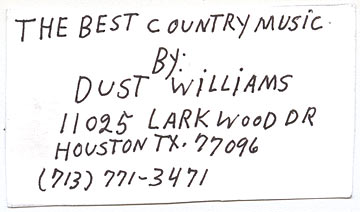 THE BEST COUNTRY MUSIC.
BY:
DUST WILLIAMS
11025 LARKWOOD DR
HOUSTON TX. 77096
(713) 771-3471